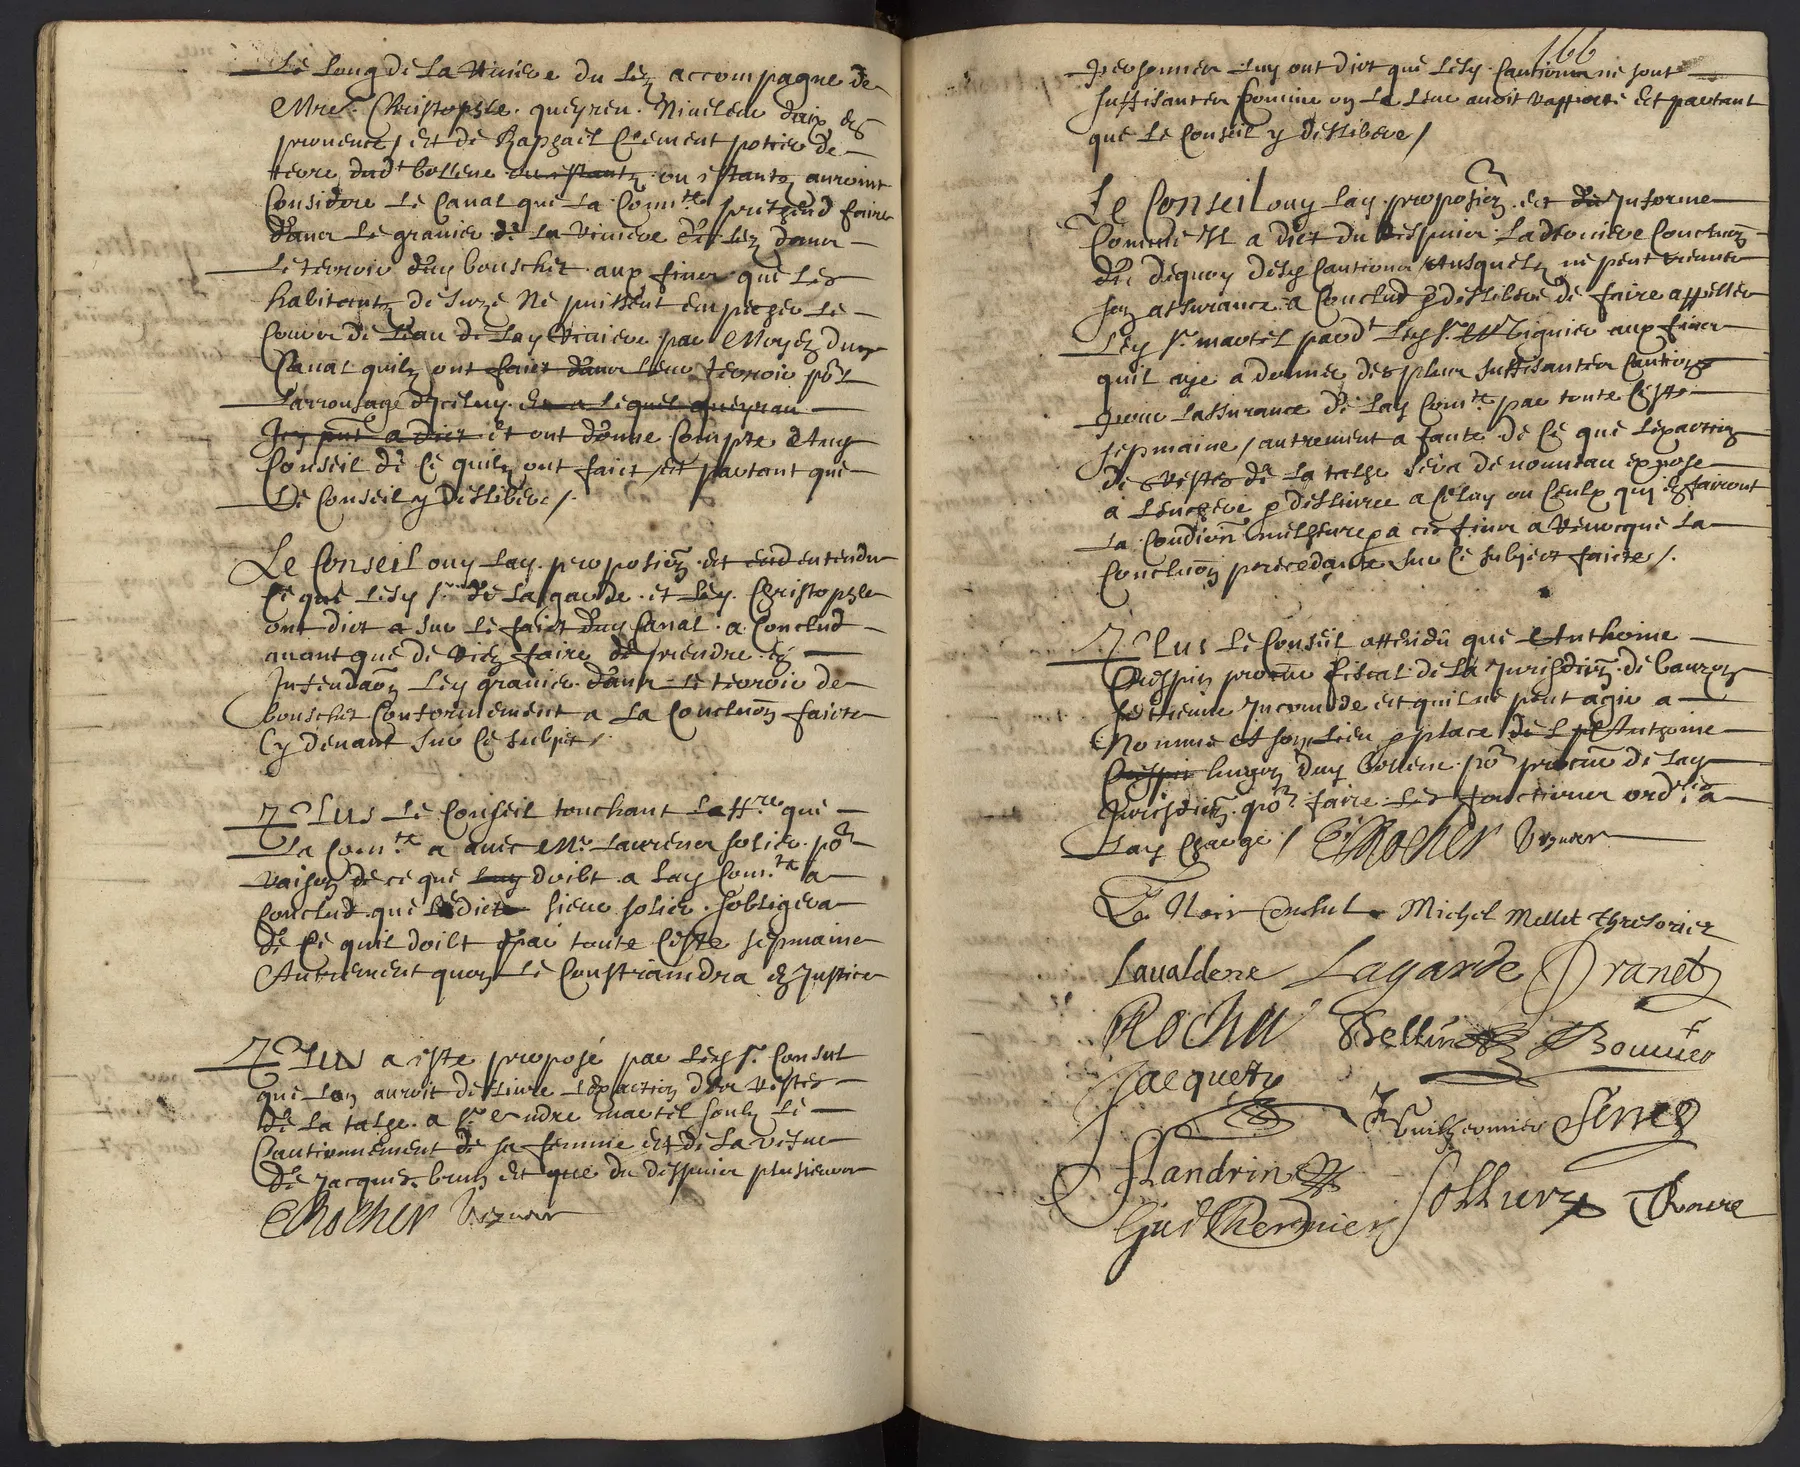 Le long de la riviere du Lez accompagne de
Mre Christophle queyren Niveleur daix en
provence / et de Raphael Clement potier de
terre dudt bollene ou estantz auroint
Considere le Canal que la Comte prethend faire
dans le gravier de la riviere du Lez dans
le terroir duy bouschet aux fines que les
habitantz de suze Ne puissent empecher le
Cours de leau de lay riviere par Moyen dun
Canal quilz ont faict dans leur terroir por
larrousage diceluy et a lequel queyran
Icy pnt a dict et ont donne Compte Auy
Conseil de Ce quilz ont faict / et partant que
Le Conseil y dellibere /.
Le Conseil ouy lay proposition et entendu
Ce que lesy srs de lagarde et ley Christophle
ont dict a sur le faict duy Canal a Conclud
avant que de rien faire de prendre en
Intendaon ley gravier dans le terroir de
bouschet Conformement a la Conclusion faicte
Cy devant sur Ce subject /.
Plus le Conseil touchant laffre que
La Comte a avec Mr Laurens solier por
raison de ce que luy doibt a lay Comte a
Conclud que ledict sieur solier sobligera
de Ce quil doibt par toute Ceste sepmaine
Autrement quon le Constraindra en Justice
Plus a este propose par lesy srs Consul
que lon auroit dellivre lexaction des restes
de la talhe a sr Andre martel soulz le
Cautionnement de sa femme et de la vefue
de Jacques brun et que du despuis plusieurs
Rocher viguier
166
personnes luy ont dict que lesy Cautions ne sont
suffisantes Comme on le leur avoit rapporte et partant
que le Conseil y dellibere /
Le Conseil ouy lay propositon et Informe
Comme Il a dict du despuis la derniere Conclusion
de dequoy desy Cautions Ausquelz ne peut
son assurance a Conclud & dellibere de faire appeller
ley sr martel pardt ley sr Viguier aux fines
quil aye a donner des plus suffisantes Cautions
pour lassurance de lay Comte par toute Ceste
sepmaine / autrement a faute de Ce que lexaction
de restes de la talhe sera de nouveau expose
a lenchere & dellivree a Celuy ou Ceulx qui en fairont
la Condion milheure & a ces fines a revocque la
Conclusion precedante sur Ce subject faicte /.
Plus le Conseil attendu que Anthoine
Crespin procur fiscal de la Jurisdion de bauzon
se trouve Incomode et quil ne peut agir a
Nomme et son lieu & place de Anthoine
Crespin hugon duy bollene por procur de lay
Jurisdion por faire les fonctions ordres a
lay Charge / Rocher viguier
Le Noir Consul Michel Mellet thresorier
Lavaldene Lagarde Dranet
Rochu Bellin Bouvier
Jacquety
Guilhermier Serres
Flandrin
Guilhermier Sollier Roure